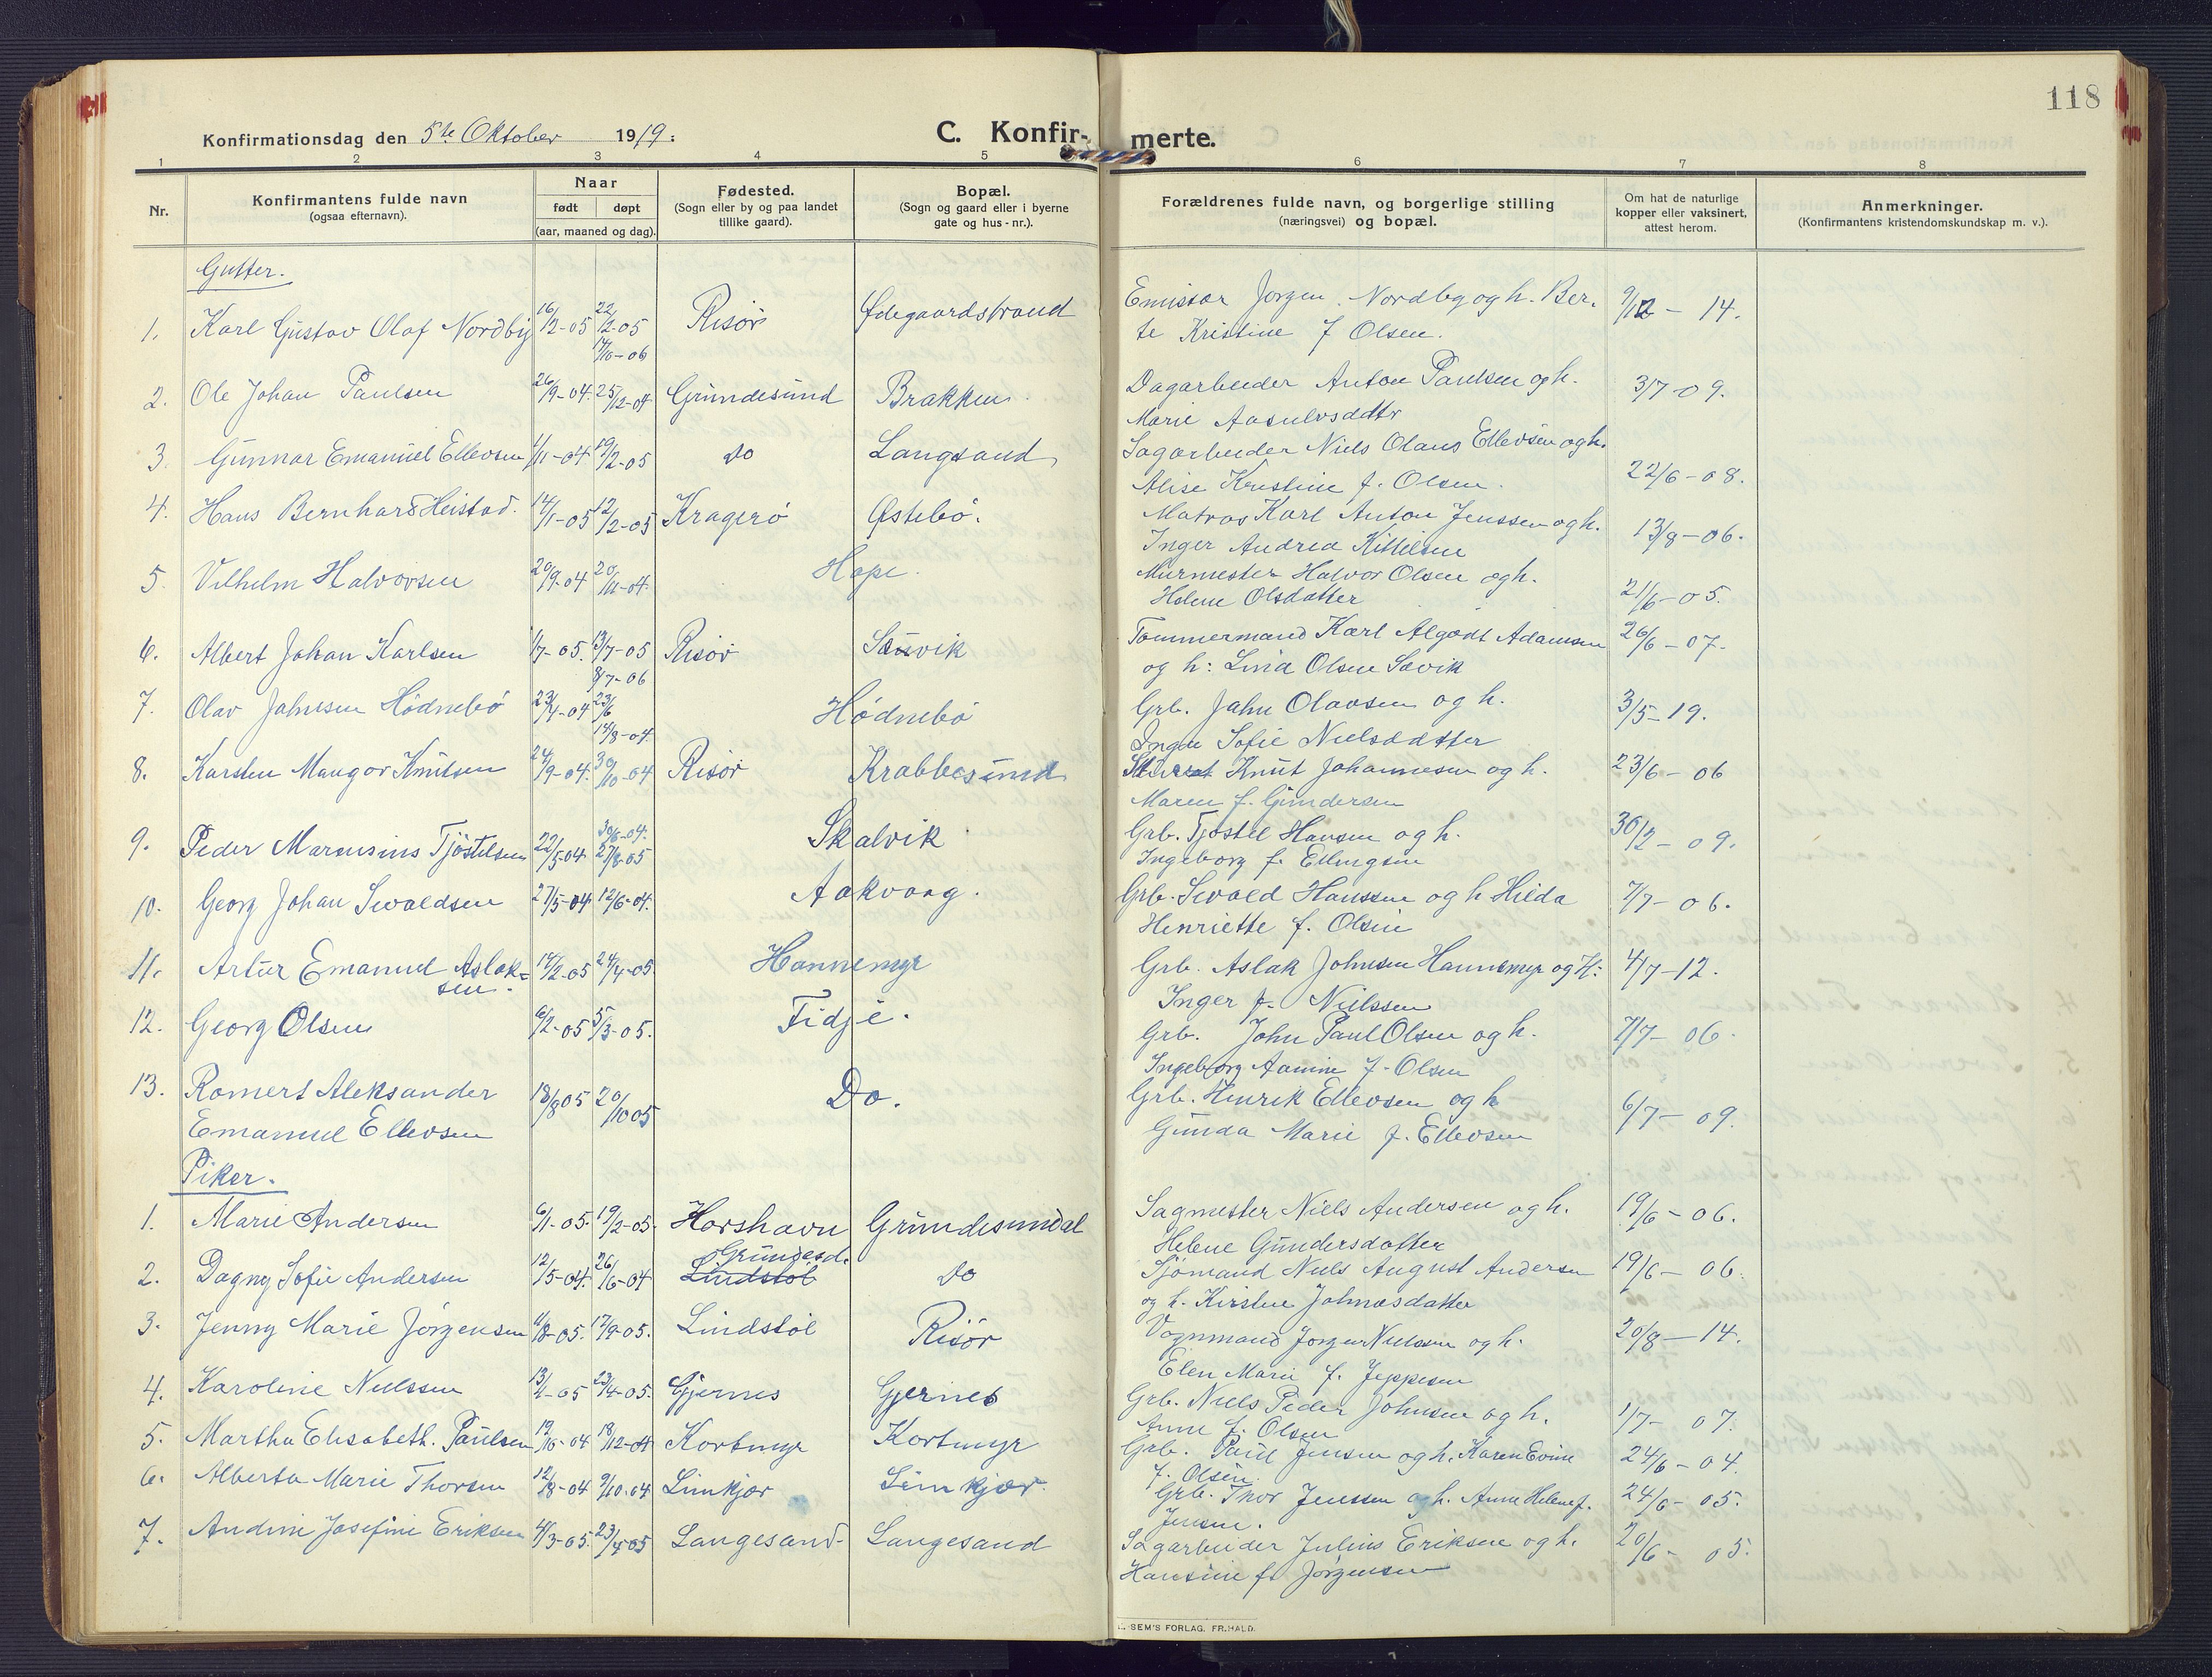 118
Konfirmationsdag den 5te Oktober 1919:
C. Konfir- merte.
1 2 3 4 5 6 7 8
Nr.
Konfirmantens fulde navn
(ogsaa efternavn).
Naar
født døpt
(aar, maaned og dag).
Fødested.
(Sogn eller by og paa landet
tillike gaard).
Bopæl.
(Sogn og gaard eller i byerne
gate og hus-nr.).
Forældrenes fulde navn, og borgerlige stilling
(næringsvei) og bopæl.
Om hat de naturlige
kopper eller vaksinert,
attest herom.
Anmerkninger.
(Konfirmantens kristendomskundskap m. v.).
Gutter.
1. Karl Gustav Olaf Nordby 16/2-05 22/2-05 Risør Ødegaardstrand Emissær Jørgen Nordby og h. Ber- 9/12 - 14.
17/10-06 te Kristine f Olsen.
2. Ole Johan Paulsen 26/9-04. 25/12-04 Grundesund Brakken Dagarbeider Anton Paulsen og h. 3/7-09.
Marie Aasulvsddtr
3. Gunnar Emanuel Ellevsen 1/11-04 19/2-05 do Langsand Sagarbeider Niels Olaus Ellevsen og h. 22/6-08.
Alise Kristine f. Olsen.
4. Hans Bernhard Heistad. 14/1-05 12/2-05 Kragerø Østebø. Matros Karl Anton Jenssen og h. 13/8-06.
Inger Andrea Kittelsen
5. Vilhelm Halvorsen 20/9-04 20/11-04. Hope. Murmester Halvor Olsen og h. 21/6-05.
Helene Olsdatter
6. Albert Johan Karlsen 1/7-05. 13/7-05 Risør Sauvik Tømmermand Karl Algodt Adamsen 26/6-07.
9/7-06 og h: Lina Olsen Savik
7. Olav Jahnsen Hødnebø 23/4-04 23/6 Hødnebø Grb. Jahn Olavsen og h. 3/5-19.
14/8-04. Inga Sofie Nielsddtter
8. Karsten Mangor Knutsen 24/9-04. 30/10-04 Risør Krabbesund Knut Johannesen og h. 23/6-06
Maren f. Gundersen
9. Peder Marensius Tjøstelsen 22/5-04 30/6-04. 27/8-05 Skalvik Grb. Tjøstel Hansen og h. 30/2-09.
Ingeborg f. Ellingsen
10. Georg Johan Sivaldsen 27/5-04 12/6-04. Aakvaag. Grb. Sivald Hanssen og h Hilda 7/7-06.
Henriette f. Olsen
11. Artur Emanuel Aslak= 14/2-05 24/4-05 Hannemyr Grb. Aslak Johnsen Hannemyr og H: 4/7-12.
sen. Inger f. Nielssen
12. Georg Olsen 6/2-05 5/3-05. Fidje. Grb. John Paul Olsen og h. 7/7-06.
Ingeborg Aamine f. Olsen
13. Romert Aleksander 18/8 05 20/10 05 Do. Grb. Henrik Ellevsen og h 6/7-09.
Emanuel Ellevsen Gunda Marie f. Ellevsen
Piker.
1. Marie Andersen 6/1-05. 19/2-05. Horshavn Grundesundal Sagmester Niels Andersen og h. 19/6-06.
Helene Gundersdatter
Grundesd.
2. Dagny Sofie Andersen 12/5-04. 26/6-04 Lindstøl do Sjømand Niels August Andersen 19/6-06.
og h. Kirstine Johnasdatter
3. Jenny Marie Jørgensen 11/8-05. 17/9-05. Lindstøl Risør Vognmand Jørgen Nielssen og h. 20/8-14.
Elen Marie f. Jeppesen
4. Karoline Nielssen 13/1-05 23/4-05. Gjernes Gjernes Grb. Niels Peder Johnsen og h. 1/7-07.
Anne f. Olsen
5. Martha Elisabeth Paulsen 19/10-04 18/12-04 Kortmyr Kortmyr Grb. Paul Jensen og h. Karen Evine 24/6-04.
f. Olsen
6. Alberta Marie Thorsen 12/8-04 9/10-04 Limkjær Limkjær Grb. Thor Jenssen og h. Anne Helene f. 24/6-05.
Jensen.
7. Andine Josefine Eriksen 4/3-05. 23/4-05 Langesand Langesand Sagarbeider Julius Eriksen og h. 20/6-05.
Hansine f. Jørgensen
SEM'S FORLAG, FR.HALD.